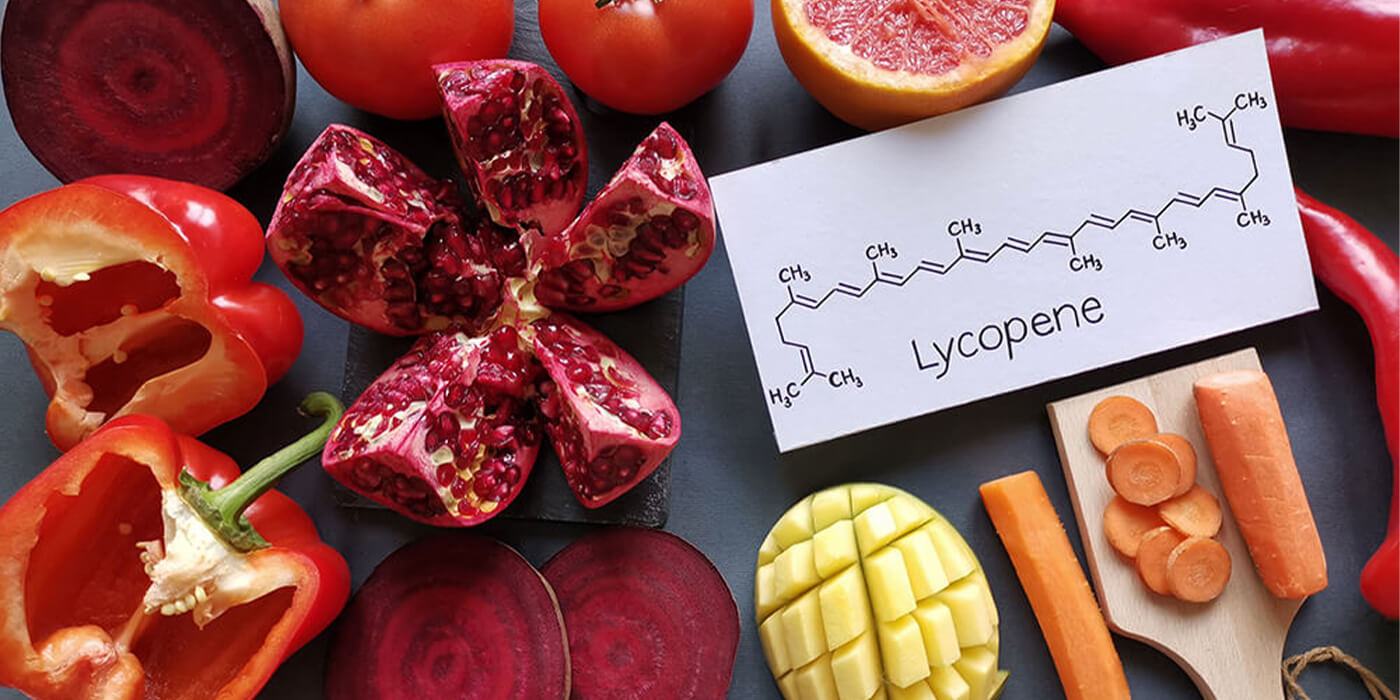 H₃C CH₃
CH₃
CH₃
CH₃
CH₃
CH₃
CH₃
H₃C CH₃
Lycopene